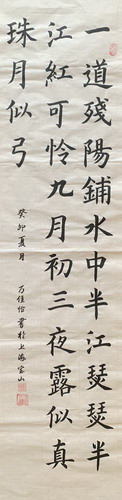 一道殘陽鋪水中半江瑟瑟半
江紅可憐九月初三夜露似真
珠月似弓
癸卯夏月
万佳怡書於上海宝山